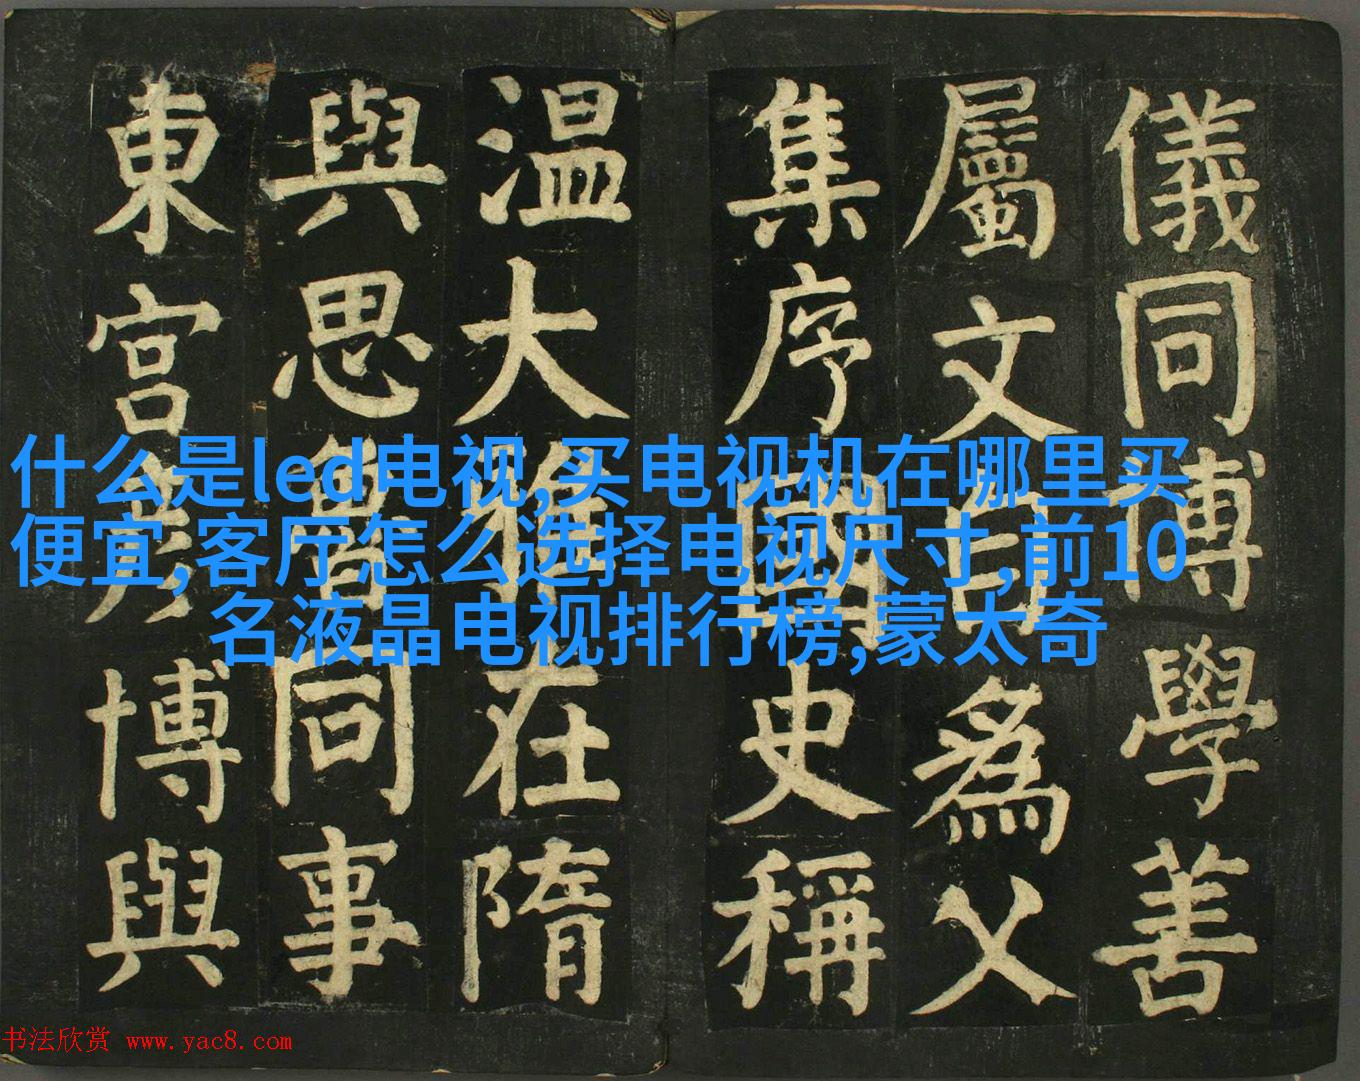 儀同博學善
屬文自為父
集序國史稱
溫大雅在隋
與思魯同事
東宮彥博與
什么是led电视,买电视机在哪里买
便宜,客厅怎么选择电视尺寸,前10
名液晶电视排行榜,蒙太奇
书法欣赏 www.yac8.com